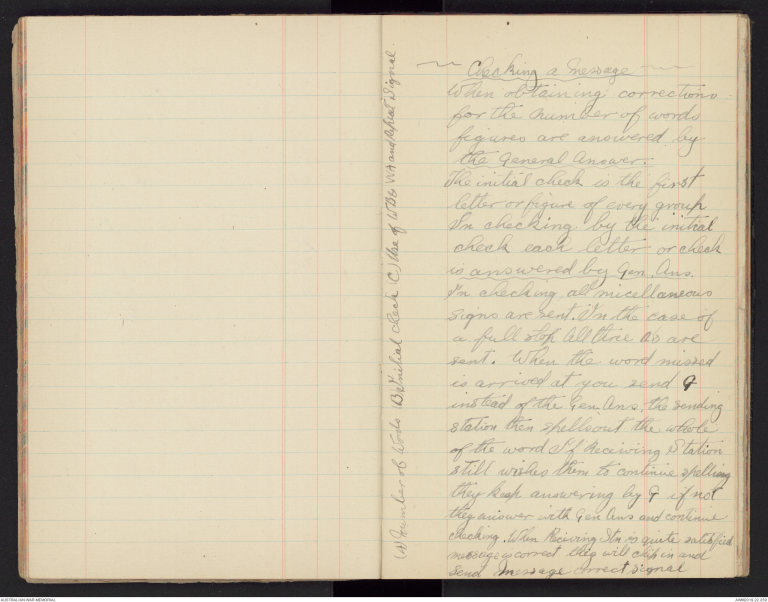 Checking a Message
When obtaining corrections
for the number of words
figures are answered by
the General Answer.
The initial check is the first
letter or figure of every group
In checking by the initial
check each letter or check
is answered by Gen. Ans.
In checking all micellaneous
signs are sent. In the case of
a full stop all three are
sent. When the word missed
is arrived at you send G
instead of the Gen. Ans. the sending
station then spells out the whole
of the word If Receiving Station
still wishes them to continue spelling
they keep answering by G if not
they answer with Gen Ans and continue
checking. When Reciving Stn is quite satisfied
message is correct they will chip in and
send Message correct signal
(A) number of Words (B) Initial check (C) Use of WB & WA and Repeat Signal.
AUSTRALIAN WAR MEMORIAL